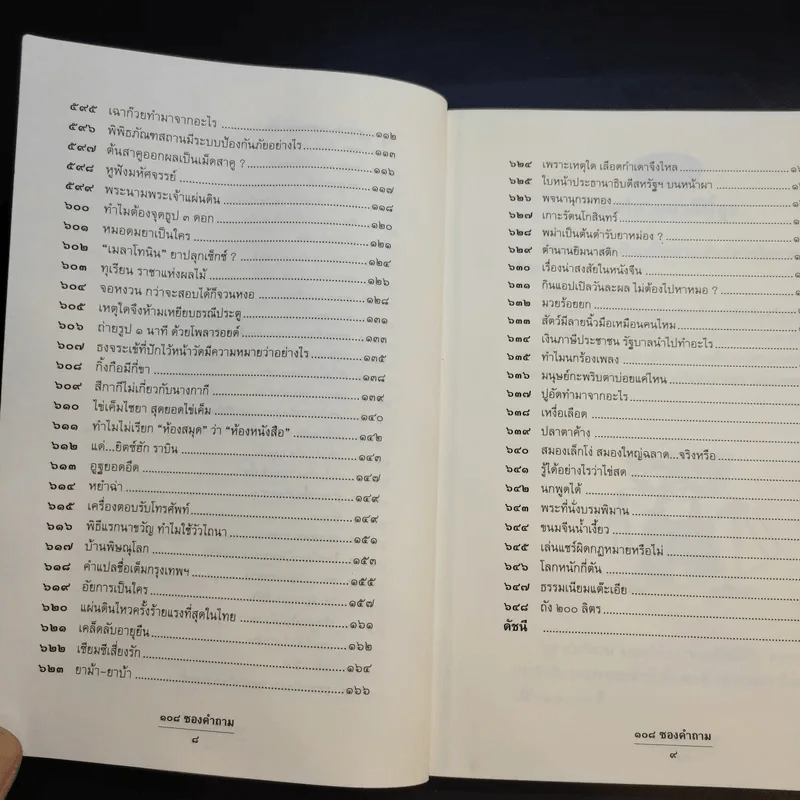 ๕๙๕ เฉาก๊วยทำมาจากอะไร ๑๑๒
๕๙๖ พิพิธภัณฑสถานมีระบบป้องกันภัยอย่างไร ๑๑๓
๕๙๗ ต้นสาคูออกผลเป็นเม็ดสาคู ? ๑๑๖
๕๙๘ หูฟังมหัศจรรย์ ๑๑๗
๕๙๙ พระนามพระเจ้าแผ่นดิน ๑๑๘
๖๐๐ ทำไมต้องจุดธูป ๓ ดอก ๑๒๐
๖๐๑ หมอดมยาเป็นใคร ๑๒๑
๖๐๒ "เมลาโทนิน" ยาปลุกเซ็กซ์ ? ๑๒๔
๖๐๓ ทุเรียน ราชาแห่งผลไม้ ๑๒๖
๖๐๔ จอหงวน กว่าจะสอบได้ก็จวนหงอ ๑๒๘
๖๐๕ เหตุใดจึงห้ามเหยียบธรณีประตู ๑๓๑
๖๐๖ ถ่ายรูป ๑ นาที ด้วยโพลารอยด์ ๑๓๓
๖๐๗ ธงจระเข้ที่ปักไว้หน้าวัดมีความหมายว่าอย่างไร ๑๓๕
๖๐๘ กิ้งกือมีกี่ขา ๑๓๘
๖๐๙ สีกากีไม่เกี่ยวกับนางกากี ๑๓๙
๖๑๐ ไข่เค็มไชยา สุดยอดไข่เค็ม ๑๔๐
๖๑๑ ทำไมไม่เรียก "ห้องสมุด" ว่า "ห้องหนังสือ" ๑๔๒
๖๑๒ แด่...ยิตซ์ฮัก ราบิน ๑๔๓
๖๑๓ อูฐยอดอึด ๑๔๗
๖๑๔ หยำฉ่า ๑๔๙
๖๑๕ เครื่องตอบรับโทรศัพท์ ๑๔๙
๖๑๖ พิธีแรกนาขวัญ ทำไมใช้วัวไถนา ๑๕๑
๖๑๗ บ้านพิษณุโลก ๑๕๓
๖๑๘ คำแปลชื่อเต็มกรุงเทพฯ ๑๕๕
๖๑๙ อัยการเป็นใคร ๑๕๗
๖๒๐ แผ่นดินไหวครั้งร้ายแรงที่สุดในไทย ๑๖๑
๖๒๑ เคล็ดลับอายุยืน ๑๖๒
๖๒๒ เซียมซีเสี่ยงรัก ๑๖๔
๖๒๓ ยาม้า-ยาบ้า ๑๖๖
๑๐๘ ซองคำถาม
๘
๖๒๔ เพราะเหตุใด เลือดกำเดาจึงไหล
๖๒๕ ใบหน้าประธานาธิบดีสหรัฐฯ บนหน้าผา
๖๒๖ พจนานุกรมทอง
๖๒๗ เกาะรัตนโกสินทร์
๖๒๘ พม่าเป็นต้นตำรับยาหม่อง ?
๖๒๙ ตำนานยิมนาสติก
๖๓๐ เรื่องน่าสงสัยในหนังจีน
๖๓๑ กินแอปเปิลวันละผล ไม่ต้องไปหาหมอ ?
๖๓๒ มวยร้อยยก
๖๓๓ สัตว์มีลายนิ้วมือเหมือนคนไหม
๖๓๔ เงินภาษีประชาชน รัฐบาลนำไปทำอะไร
๖๓๕ ทำไมนกร้องเพลง
๖๓๖ มนุษย์กะพริบตาบ่อยแค่ไหน
๖๓๗ ปูอัดทำมาจากอะไร
๖๓๘ เหงื่อเลือด
๖๓๙ ปลาตาค้าง
๖๔๐ สมองเล็กโง่ สมองใหญ่ฉลาด...จริงหรือ
๖๔๑ รู้ได้อย่างไรว่าไข่สด
๖๔๒ นกพูดได้
๖๔๓ พระที่นั่งบรมพิมาน
๖๔๔ ขนมจีนน้ำเงี้ยว
๖๔๕ เล่นแชร์ผิดกฎหมายหรือไม่
๖๔๖ โลกหนักกี่ตัน
๖๔๗ ธรรมเนียมแต๊ะเอีย
๖๔๘ ถัง ๒๐๐ ลิตร
ดัชนี
๑๐๘ ซองคำถาม
๙